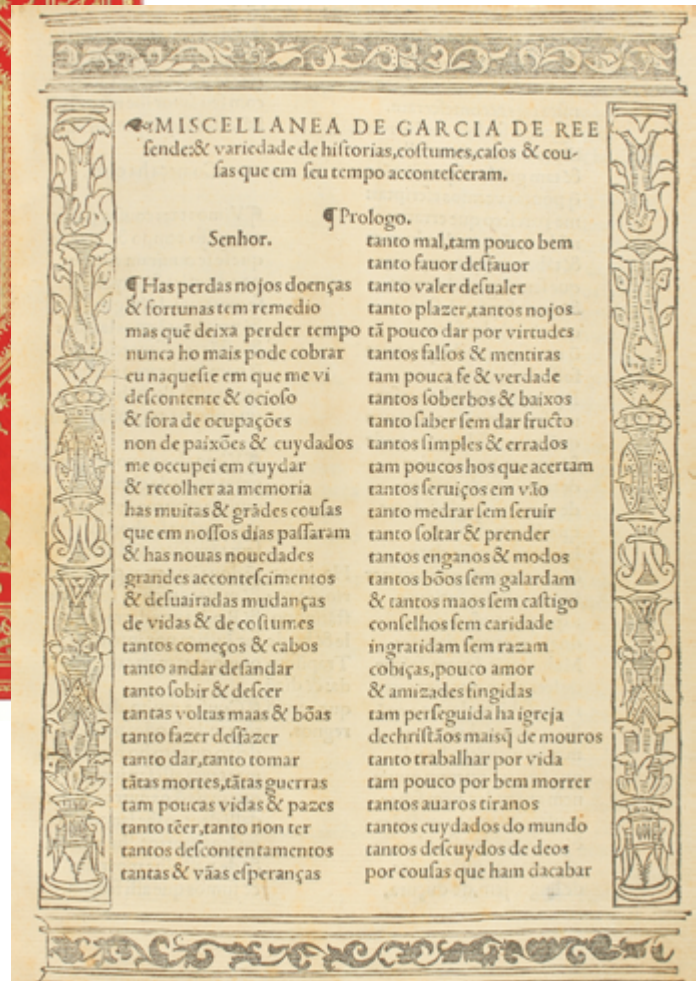 ☙MISCELLANEA DE GARCIA DE REE
ſende:& variedade de hiſtorias,coſtumes,caſos & cou-
ſas que em ſeu tempo acconteſceram.
¶Prologo.
Senhor.
¶Has perdas nojos doenças
& fortunas tem remedio
mas quē deixa perder tempo
nunca ho mais pode cobrar
eu naqueſte em que me vi
deſcontente & ocioſo
& fora de ocupações
non de paixões & cuydados
me occupei em cuydar
& recolher aa memoria
has muitas & grādes couſas
que em noſſos dias paſſaram
& has nouas nouedades
grandes acconteſcimentos
& deſuairadas mudanças
de vidas & de coſtumes
tantos começos & cabos
tanto andar deſandar
tanto ſobir & deſcer
tantas voltas maas & bōas
tanto fazer deſſazer
tanto dar,tanto tomar
tātas mortes,tātas guerras
tam poucas vidas & pazes
tanto tēer,tanto non ter
tantos deſcontentamentos
tantas & vāas eſperanças
tanto mal,tam pouco bem
tanto fauor deſfauor
tanto valer deſualer
tanto plazer,tantos nojos
tā pouco dar por virtudes
tantos falſos & mentiras
tam pouca fe & verdade
tantos ſoberbos & baixos
tanto ſaber ſem dar fructo
tantos ſimples & errados
tam poucos hos que acertam
tantos ſeruiços em vāo
tanto medrar ſem ſeruir
tanto ſoltar & prender
tantos enganos & modos
tantos bōos ſem galardam
& tantos maos ſem caſtigo
conſelhos ſem caridade
ingratidam ſem razam
cobiças,pouco amor
& amizades fingidas
tam perſeguida ha igreja
dechriſtāos maisq̄ de mouros
tanto trabalhar por vida
tam pouco por bem morrer
tantos auaros tiranos
tantos cuydados do mundo
tantos deſcuydos de deos
por couſas que ham dacabar